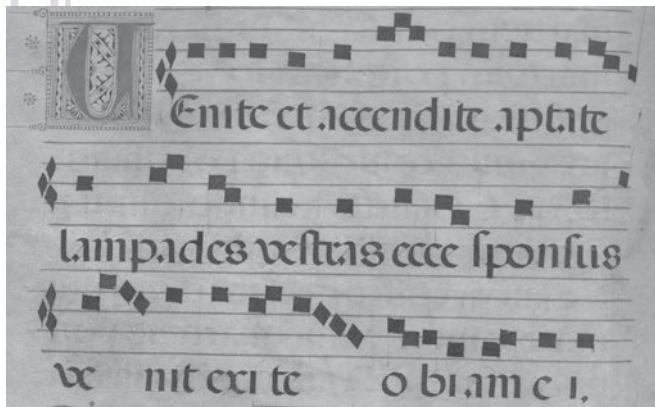 VEnite et accendite aptate
lampades vestras ecce sponsus
ve nit exi te o biam e i.